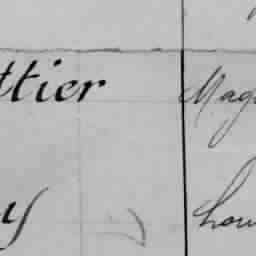 ttier Mag
y Lou